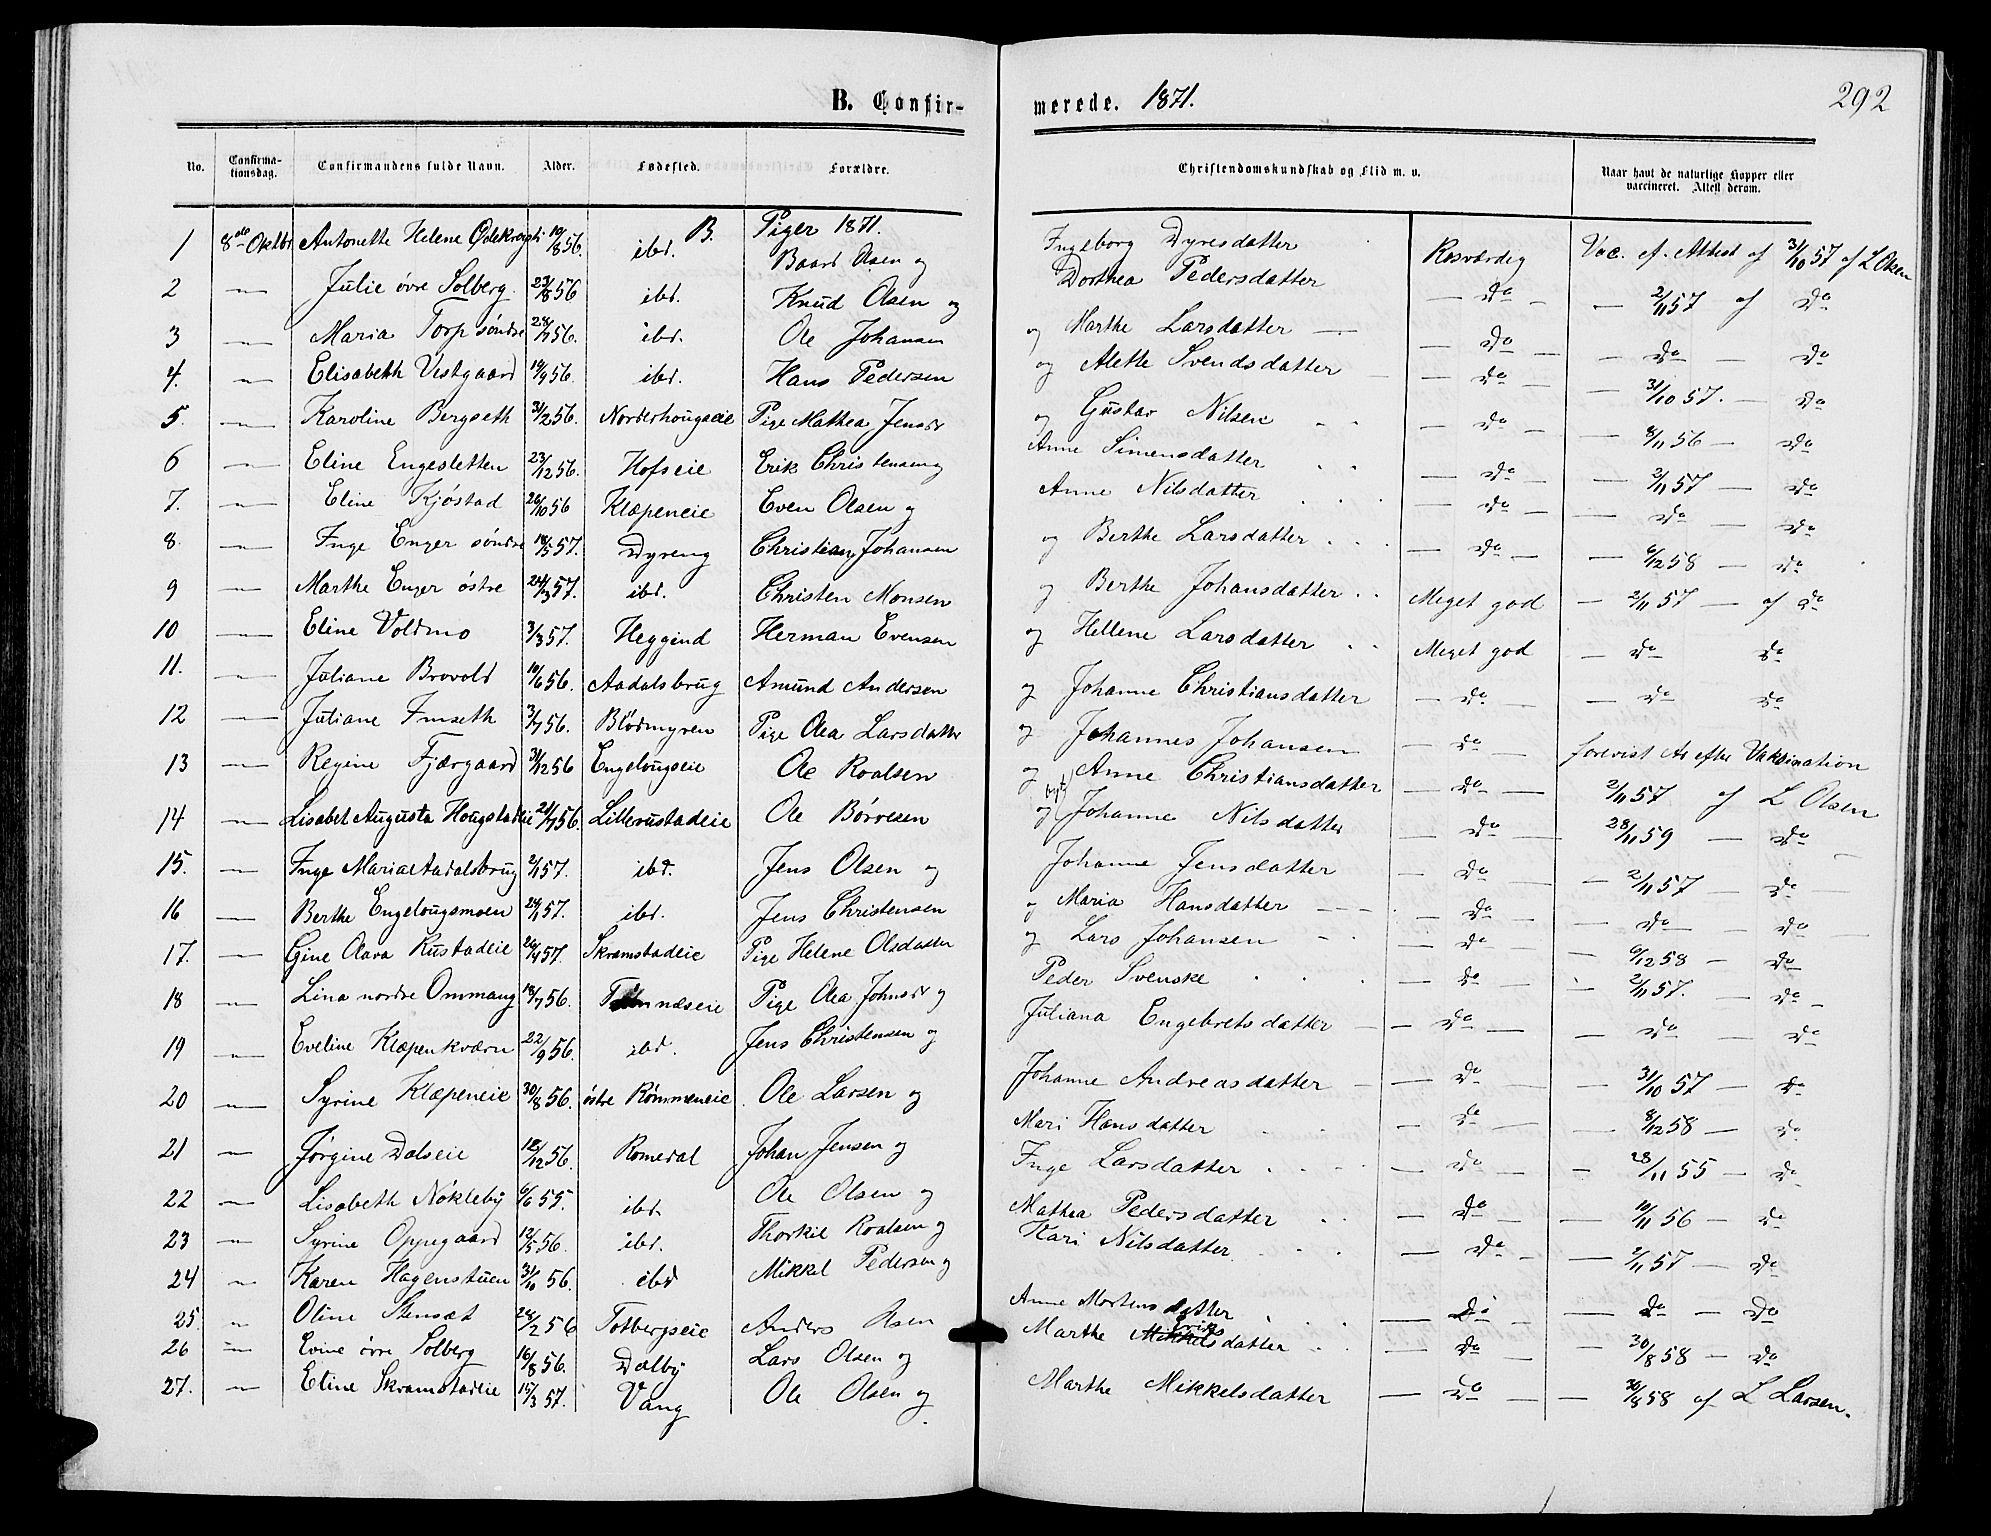 B. Confir-
merede. 1871.
292
No. Confirma-tionsdag. Confirmandens fulde Navn. Alder. Fødested. Forældre. Christendomskundskab og Flid m. v. Naar havt de naturlige Kopper eller vaccineret. Attest derom.
B. Piger 1871.
1 8de Oktbr Antonette Helene 19/8 56. ibd. Baard Olsen og Ingeborg Dyresdatter Rosværdig Vac. ef. Attest af 31/10 57 af L Olsen
2 — Julie övre Solberg. 23/8 56 ibd. Knud Olsen og Dorthea Pedersdatter — do — — 2/11 57 af do
3 — Maria Torp söndre 28/7 56. ibd. Ole Johansen og Marthe Larsdatter — — do — — do — do
4. — Elisabeth Vestgaard 19/9 56. ibd. Hans Pedersen og Alette Svendsdatter — — do — — 31/10 57. — do
5. — Karoline Bergseth 31/12 56. Norderhougseie Pige Mathea Jensdr og Gustav Nilsen — do — — 8/11 56 — do
6 — Eline Engesletten 23/12 56. Hofseie Erik Christensen og Anne Simensdatter — do — — 2/11 57 — do
7. — Eline Kjöstad 26/10 56 Klæpeneie Even Olsen og Anne Nilsdatter — do — — do — do
8. — Inge Enger söndre 18/5 57. Dyreng Christian Johansen og Berthe Larsdatter — do — — 6/12 58 — do
9 — Marthe Enger östre 24/3 57. ibd. Christen Monsen og Berthe Johansdatter Meget god — 2/11 57 — af do
10 — Eline Voldmo 3/3 57. Heggind Herman Evensen og Hellene Larsdatter Meget god — do do
11. — Juliane Brovold 10/6 56. Aadalsbrug Amund Andersen og Johanne Christiansdatter — do — — do do
12 — Juliane Imseth 3/7 56. Blödmyren Pige Olea Larsdatter og Johannes Johansen — do — forevist At efter Vaksination
13 — Regine Fjærgaard 31/12 56 Engelougseie Ole Roalsen og Anne Christiansdatter — do — 2/11 57 af L Olsen
14 — Lisabet Augusta Hougstadeie 21/7 56. Lillerustadeie Ole Börresen og Johanne Nilsdatter — do — 28/11 59 — do
15. — Inge Maria Aadalsbrug 2/1 57. ibd. Jens Olsen og Johanne Jensdatter — do — — 2/11 57 — do —
16 — Berthe Engelougsmoen 24/1 57. ibd. Jens Christensen og Maria Hansdatter — — do — — do — do —
17. — Gine Olava Rustadeie 26/4 57. Skramstadeie Pige Helene Olsdatter og Lars Johansen — do — 6/12 58 — do
18 — Lina nordre Ommang 18/7 56. Pige Olea Johnsdr og Peder Svenske do — 2/11 57. — do —
19 — Eveline Klæpenkværn 22/9 56. ibd. Jens Christensen og Juliana Engebretsdatter — — do — — do — do
20 — Syrine Klæpeneie 30/8 56. östre Römmeneie Ole Larsen og Johanne Andreasdatter — — do — — 31/10 57 — do
21 — Jörgine Dalseie 12/12 56. Romedal Johan Jensen og Mari Hansdatter — do — — 8/12 58 — do
22 — Lisabeth Nökleby 6/6 55. ibd. Ole Olsen og Inge Larsdatter — do — — 28/11 55 — do
23 — Syrine Oppegaard 12/5 56. ibd. Thorkil Roalsen og Mathea Pedersdatter — do — — 10/11 56 — do
24 — Karen Hagenstuen 31/10 56. ibd Mikkel Pedersen og Kari Nilsdatter — do — — 2/11 57 — do
25. — Oline Stensæt 24/2 56 Totbergseie Anders Olsen Anne Mortensdatter — do — — do — do
26 — Evine övre Solberg 16/8 56. Dalby Lars Olsen og Marthe Eriksdatter — do — — 30/8 58 — do
27. — Eline Skramstadeie 15/3 57. Vang Ole Olsen og Marthe Mikkelsdatter — do — — 30/8 58 af L Larsen.